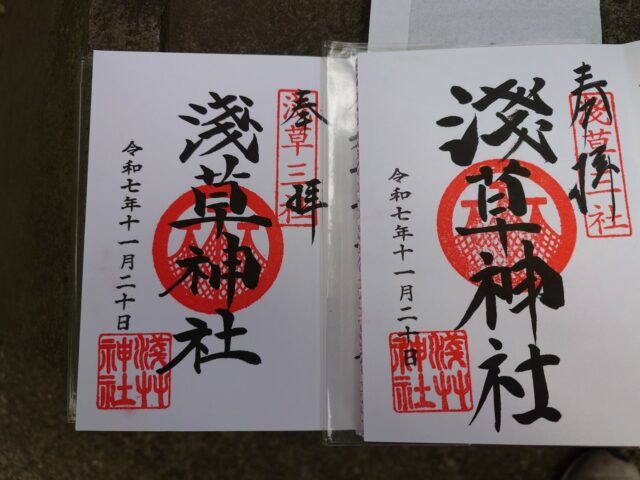 奉拝
淺草三社
淺草神社
令和七年十一月二十日
淺艸神社
奉拝
淺草三社
淺草神社
令和七年十一月二十日
淺艸神社